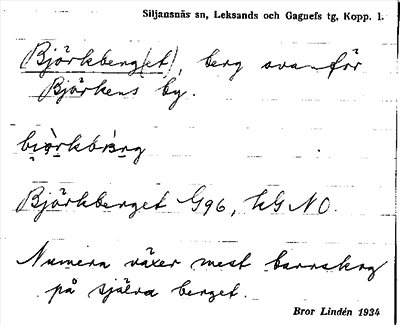 Siljansnäs sn, Leksands och Gagnefs tg, Kopp. l.
Björkberg(et), berg ovanför
Björkens by.
Björkberget G96, hG NO.
Numera växer mest barrskog
på själva berget.
Bror Lindén 1934